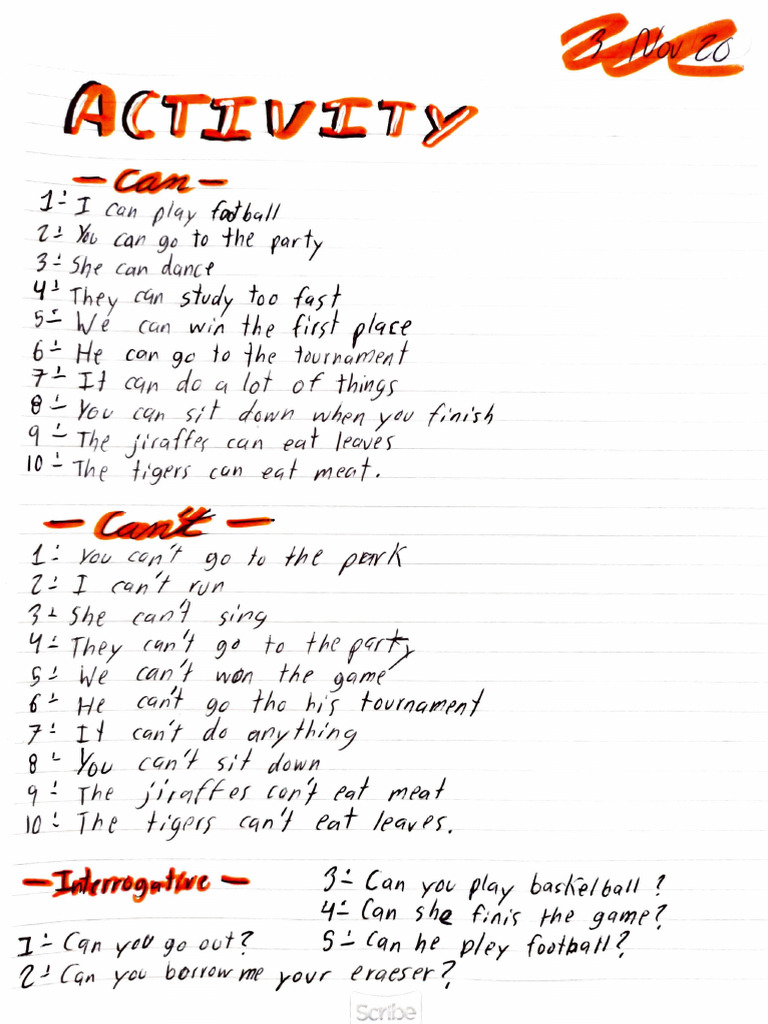 3 Nov 20
ACTIVITY
- Can -
1- I can play football
2- You can go to the party
3- She can dance
4- They can study too fast
5- We can win the first place
6- He can go to the tournament
7- It can do a lot of things
8- You can sit down when you finish
9- The jiraffes can eat leaves
10- The tigers can eat meat.
- Can't -
1- You can't go to the park
2- I can't run
3- She can't sing
4- They can't go to the party
5- We can't won the game
6- He can't go tho his tournament
7- It can't do anything
8- You can't sit down
9- The jiraffes can't eat meat
10- The tigers can't eat leaves.
- Interrogative -
1- Can you go out?
2- Can you borrow me your eraeser?
3- Can you play basketball?
4- Can she finis the game?
5- Can he pley football?
Scribe